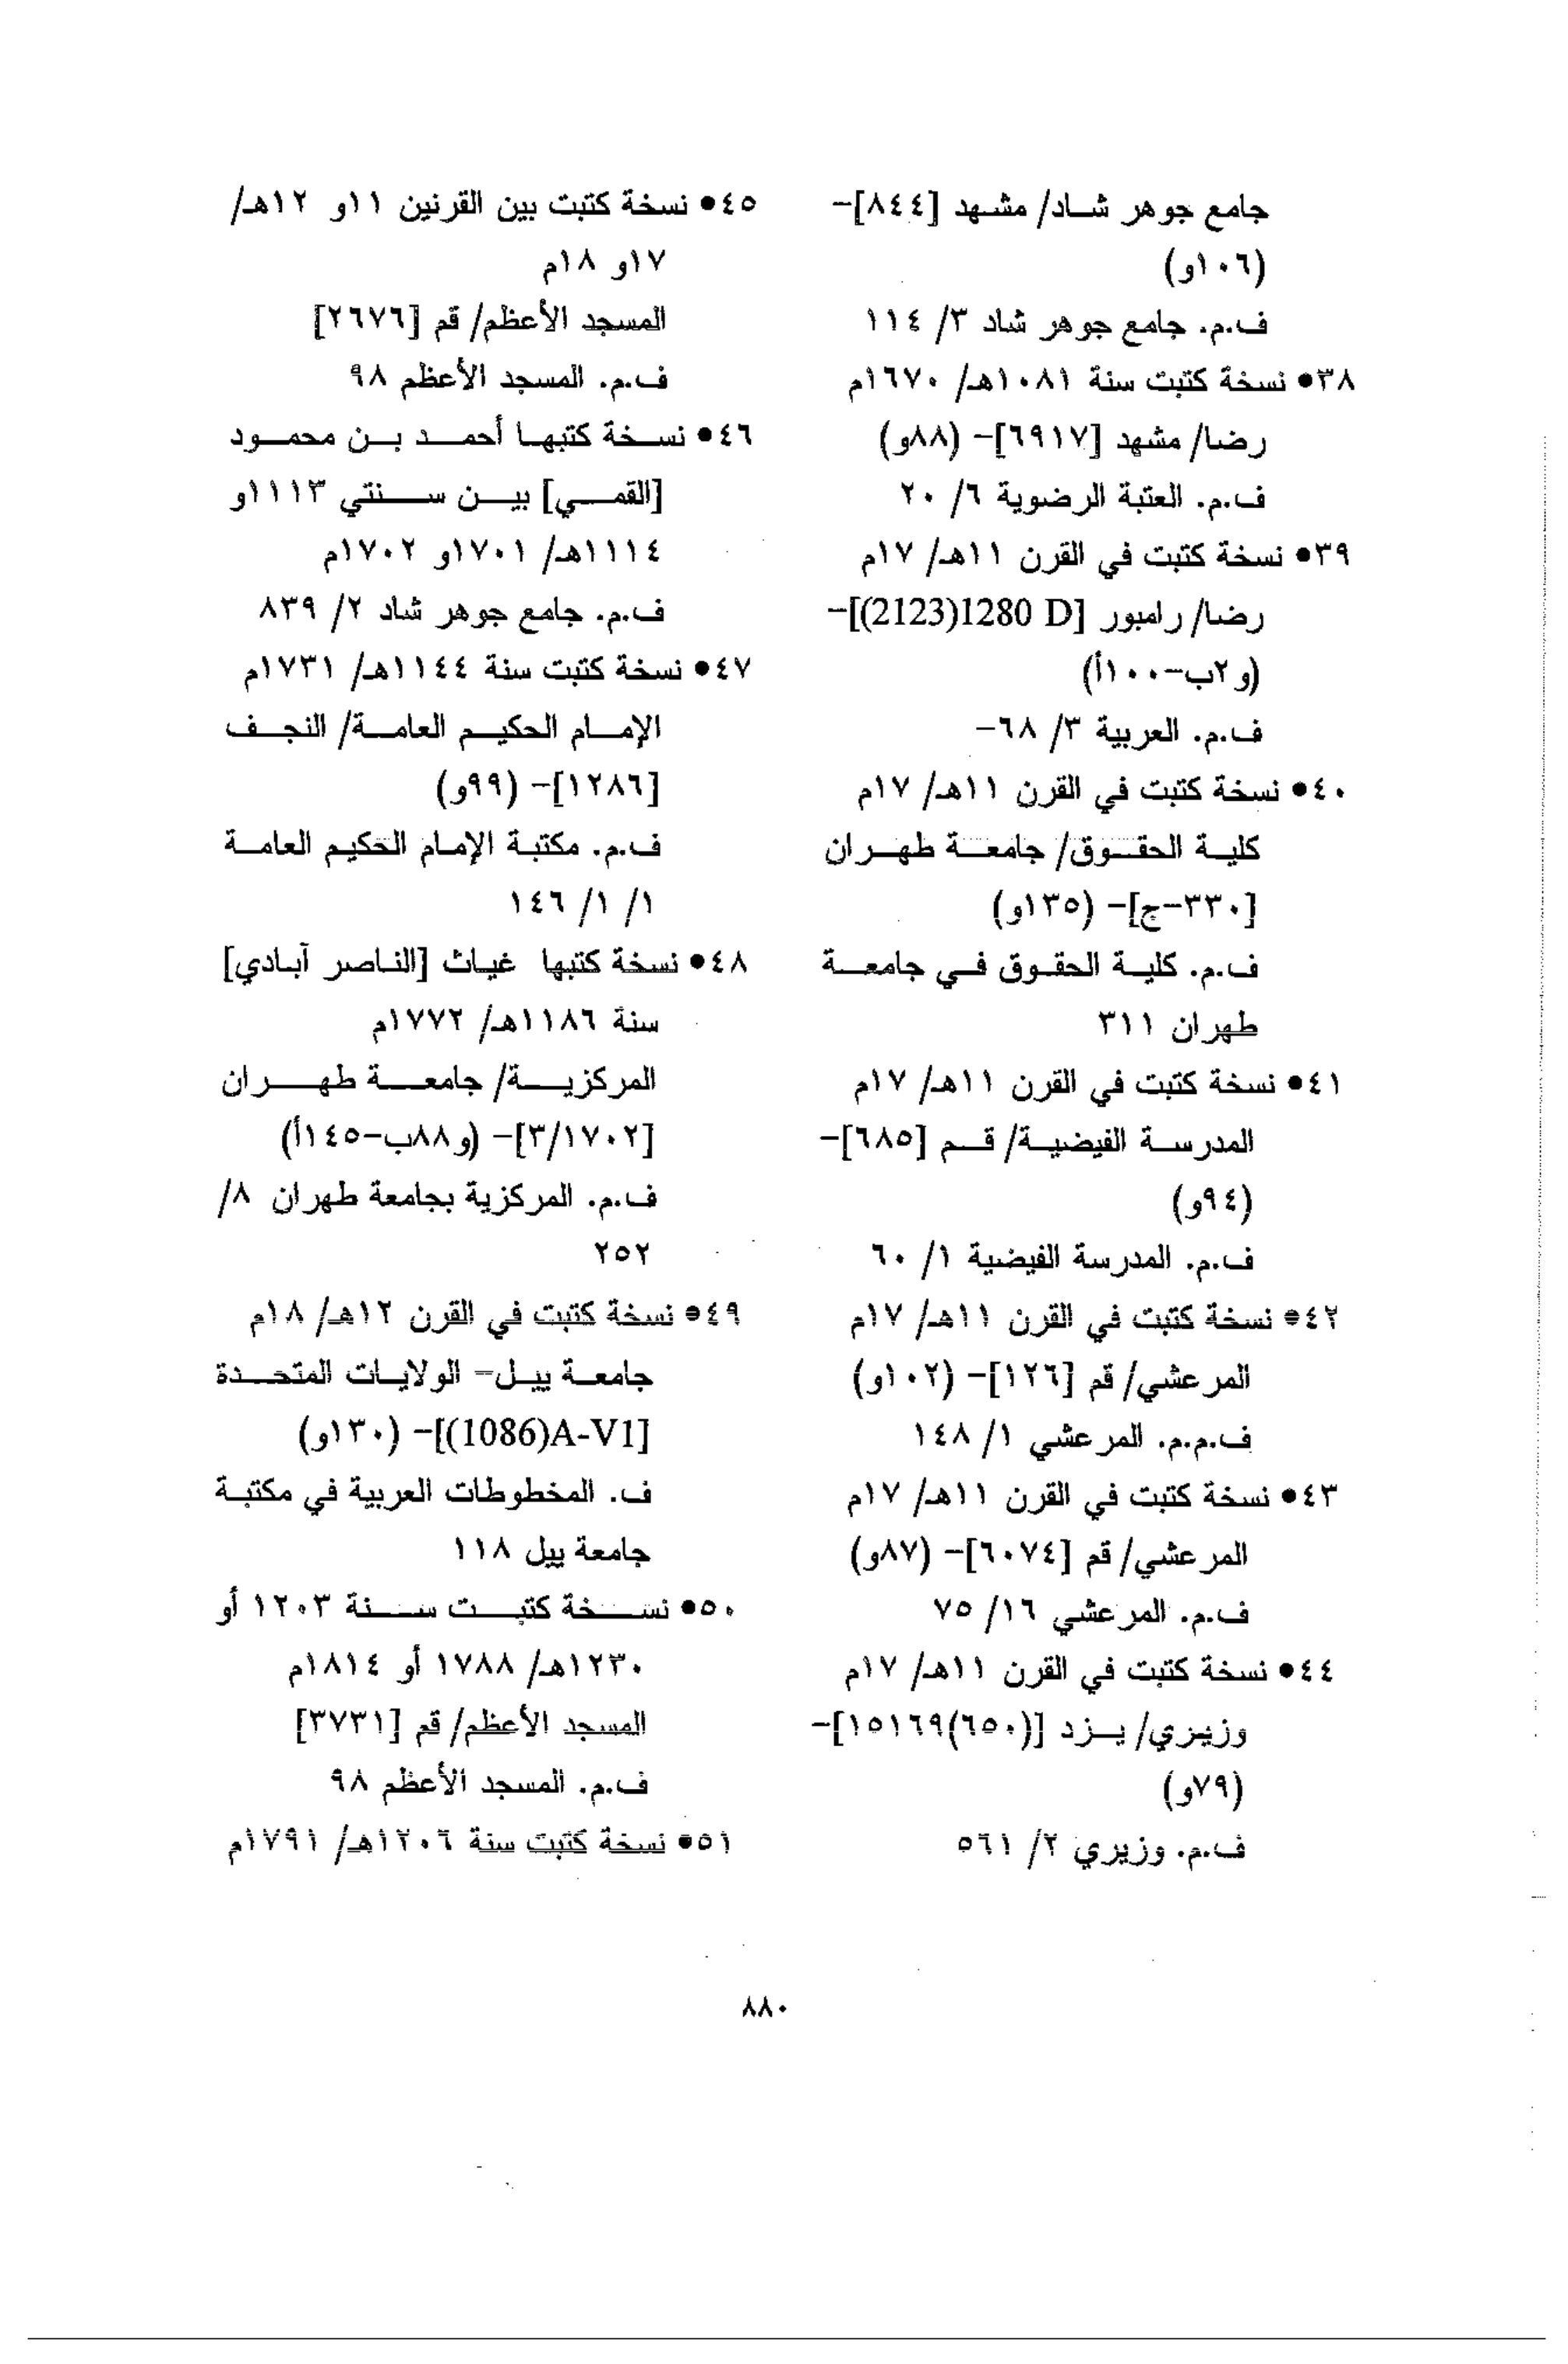 جامع جوهر شاد/ مشهد [٨٤٤]-
(١٠٦و)
ف.م. جامع جوهر شاد ٣/ ١١٤
٣٨• نسخة كتبت سنة ١٠٨١هـ/ ١٦٧٠م
رضا/ مشهد [٦٩١٧]- (٨٨و)
ف.م. العتبة الرضوية ٦/ ٢٠
٣٩• نسخة كتبت في القرن ١١هـ/ ١٧م
رضا/ رامبور [1280 D(2123)]-
(و٢ب-١٠٠أ)
ف.م. العربية ٣/ ٦٨-
٤٠• نسخة كتبت في القرن ١١هـ/ ١٧م
كلية الحقوق/ جامعة طهران
[٣٣٠-ج]- (١٣٥و)
ف.م. كلية الحقوق في جامعة
طهران ٣١١
٤١• نسخة كتبت في القرن ١١هـ/ ١٧م
المدرسة الفيضية/ قم [٦٨٥]-
(٩٤و)
ف.م. المدرسة الفيضية ١/ ٦٠
٤٢• نسخة كتبت في القرن ١١هـ/ ١٧م
المرعشي/ قم [١٢٦]- (١٠٢و)
ف.م.م. المرعشي ١/ ١٤٨
٤٣• نسخة كتبت في القرن ١١هـ/ ١٧م
المرعشي/ قم [٦٠٧٤]- (٨٧و)
ف.م. المرعشي ١٦/ ٧٥
٤٤• نسخة كتبت في القرن ١١هـ/ ١٧م
وزيري/ يزد [(٦٥٠)١٥١٦٩]-
(٧٩و)
ف.م. وزيري ٢/ ٥٦١
٤٥• نسخة كتبت بين القرنين ١١و ١٢هـ/
١٧و ١٨م
المسجد الأعظم/ قم [٢٦٧٦]
ف.م. المسجد الأعظم ٩٨
٤٦• نسخة كتبها أحمد بن محمود
[القمي] بين سنتي ١١١٣و
١١١٤هـ/ ١٧٠١و ١٧٠٢م
ف.م. جامع جوهر شاد ٢/ ٨٣٩
٤٧• نسخة كتبت سنة ١١٤٤هـ/ ١٧٣١م
الإمام الحكيم العامة/ النجف
[١٢٨٦]- (٩٩و)
ف.م. مكتبة الإمام الحكيم العامة
١/ ١/ ١٤٦
٤٨• نسخة كتبها غياث [الناصر آبادي]
سنة ١١٨٦هـ/ ١٧٧٢م
المركزية/ جامعة طهران
[٣/١٧٠٢]- (و٨٨ب-١٤٥أ)
ف.م. المركزية بجامعة طهران ٨/
٢٥٢
٤٩• نسخة كتبت في القرن ١٢هـ/ ١٨م
جامعة ييل- الولايات المتحدة
[A-V1(1086)]- (١٣٠و)
ف. المخطوطات العربية في مكتبة
جامعة ييل ١١٨
٥٠• نسخة كتبت سنة ١٢٠٣ أو
١٢٣٠هـ/ ١٧٨٨ أو ١٨١٤م
المسجد الأعظم/ قم [٣٧٣١]
ف.م. المسجد الأعظم ٩٨
٥١• نسخة كتبت سنة ١٢٠٦هـ/ ١٧٩١م
٨٨٠